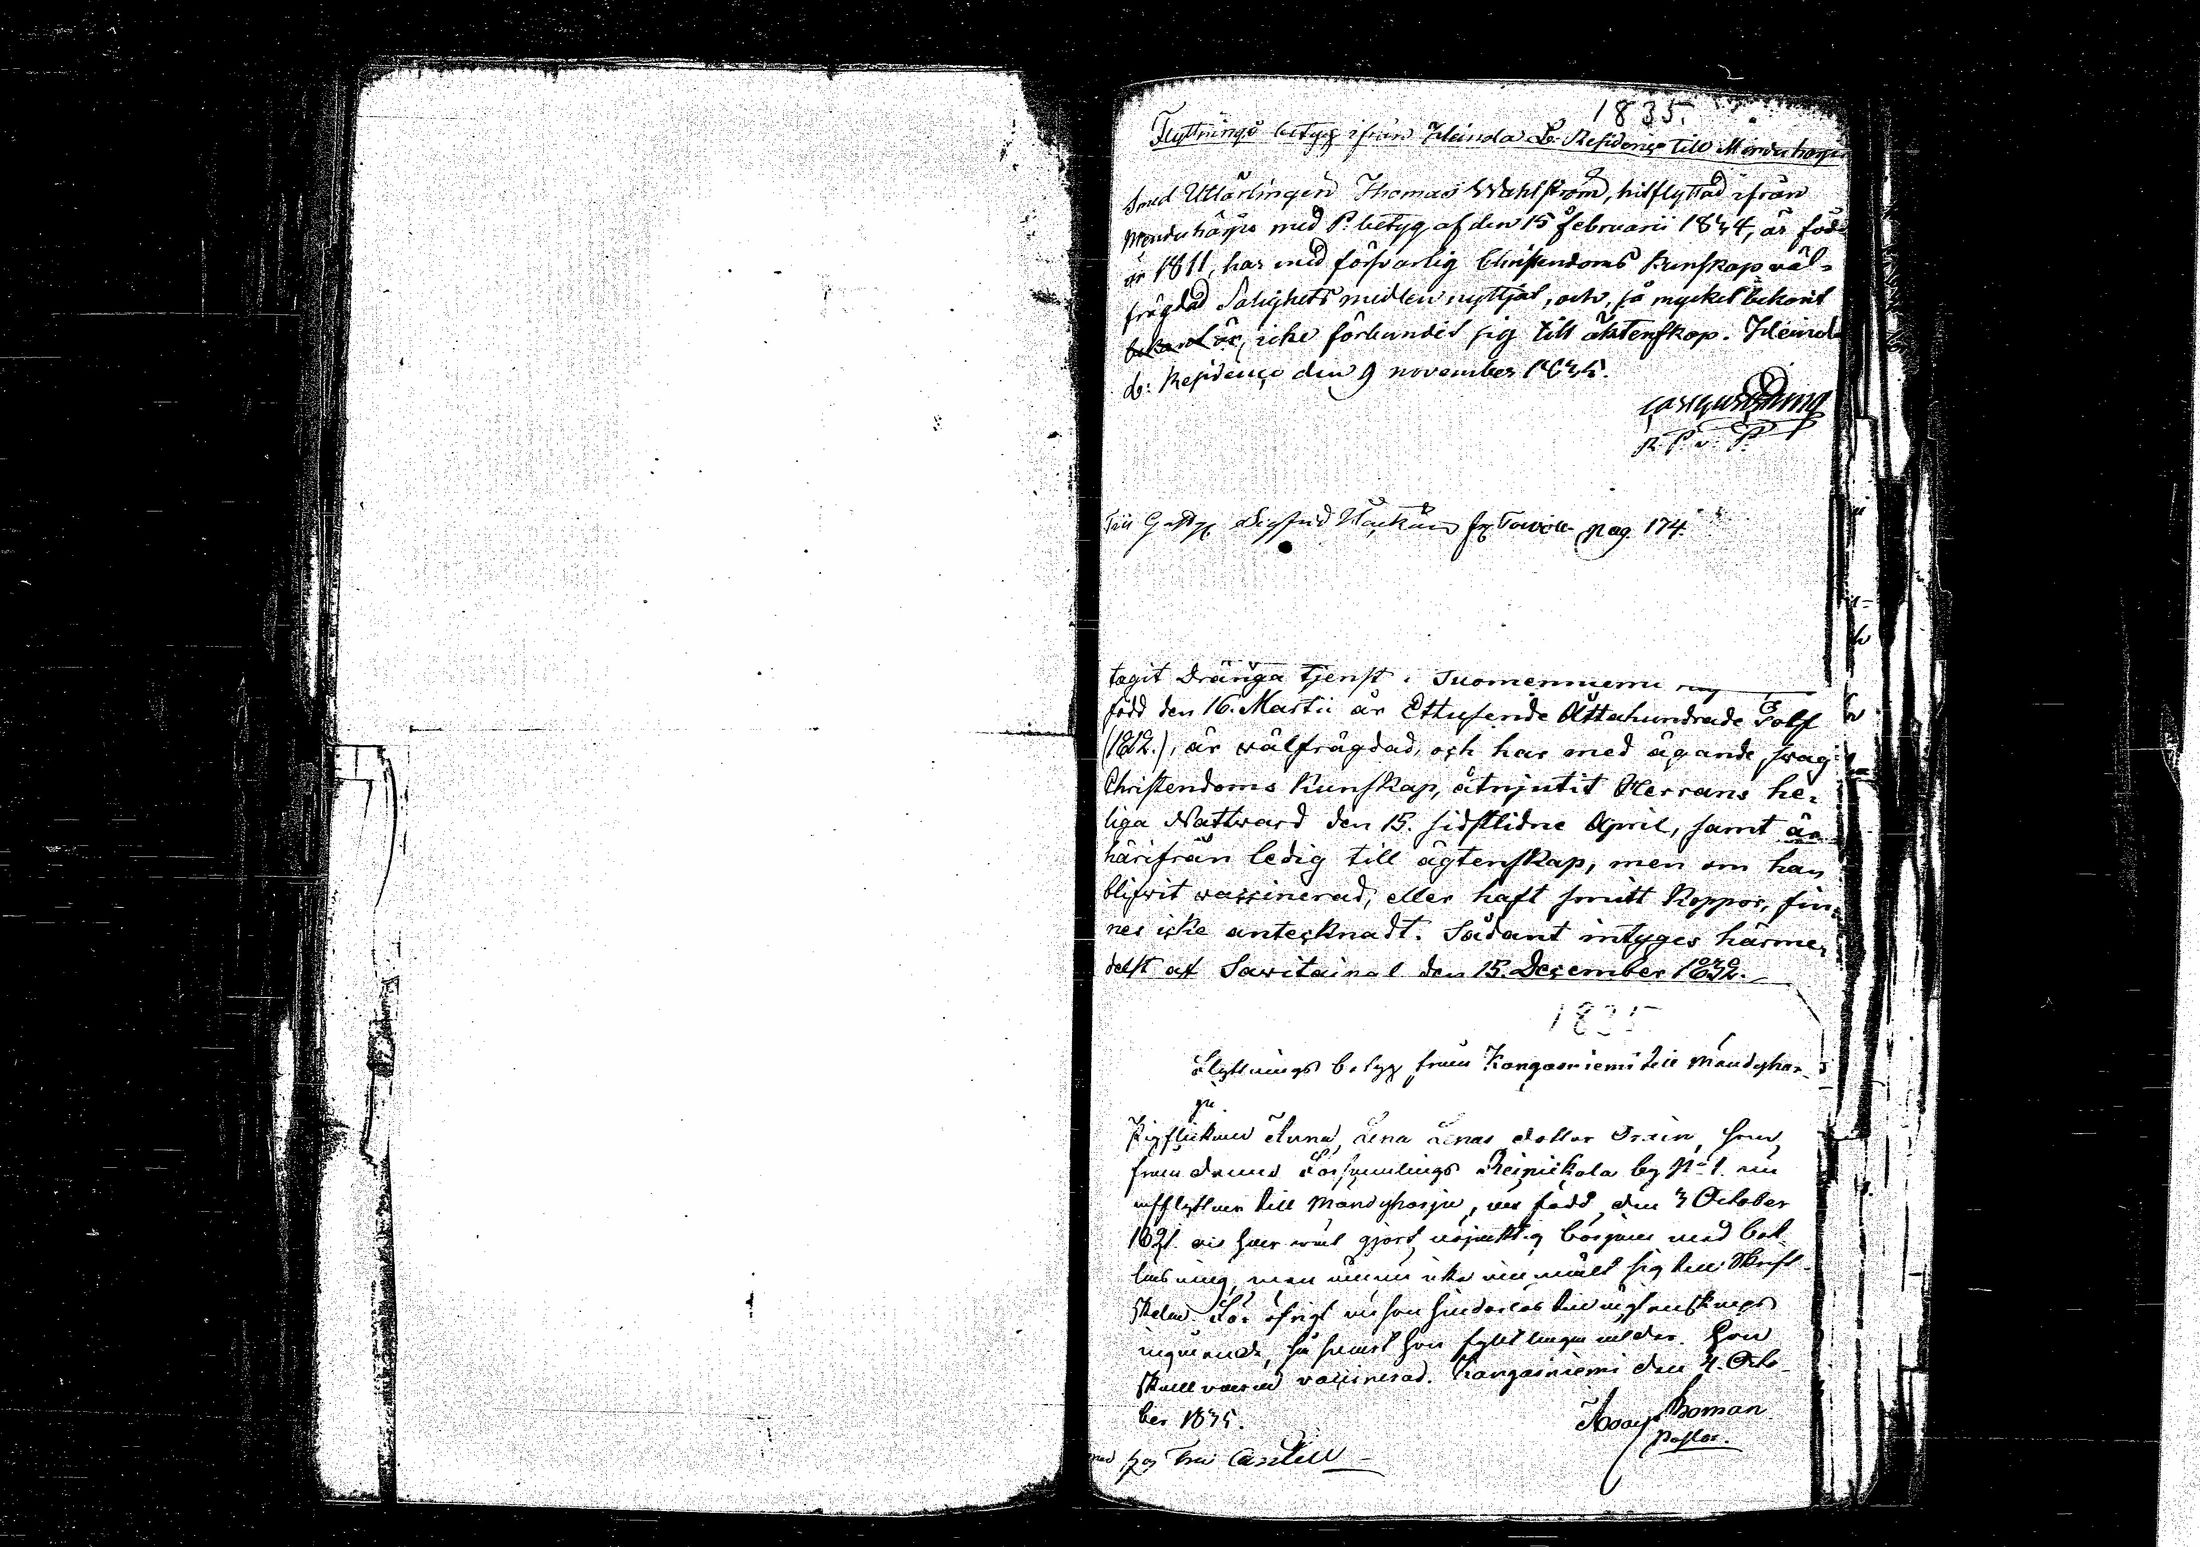 1835.
Flyttnings betyg ifrån Heinola L: Residence till Mändyharju
Smed Utlärlingen Thomas Wahlström, hitflyttad ifrån
Mändyharju med P. betyg af den 15 februarii 1834, är född
år 1811, har med försvarlig Christendoms kunskap väl-
frägdad Salighets medlen nyttjat, och, så mycket bekant
bekant är, icke förbundit sig till äktenskap. Heinola
L: Residence den 9 november 1835.
Till Sigfrid pag 174.
tagit Dränga tjenst i Suomenniemi
född den 16. Martii år Ettusende Åttahundrade Tolf
(1812.), är wälfrägdad, och har med ägande swag
Christendoms Kunskap, åtnjutit Herrans he-
liga Nattward den 15. sidstlidne April, samt är
härifrån ledig till ägtenskap, men om han
blifwit waccinerad, eller haft smitt Koppor, fin-
nes icke antecknadt. Sådant intyges härme-
delst af Sawitaipal den 15. December 1832.
1835
Flyttnings betyg från Kangasniemi till Mändyhar-
ju.
Pigflickan Anna Lena Lenas dotter, som
från denna Församlings by No 1. nu
afflyttar till Mändyharju, är född den 3 October
1821. och har wäl gjort början med bok
läsning, men ännu icke inmält sig till Skrift-
skolan. För öfrigt är hon hinderlös till ägtenskaps
ingående, så snart hon fyllt laga ålder. Hon
skall vara vaccinerad. Kangasniemi den 4. Octo-
ber 1835.
Boman
Pastor.